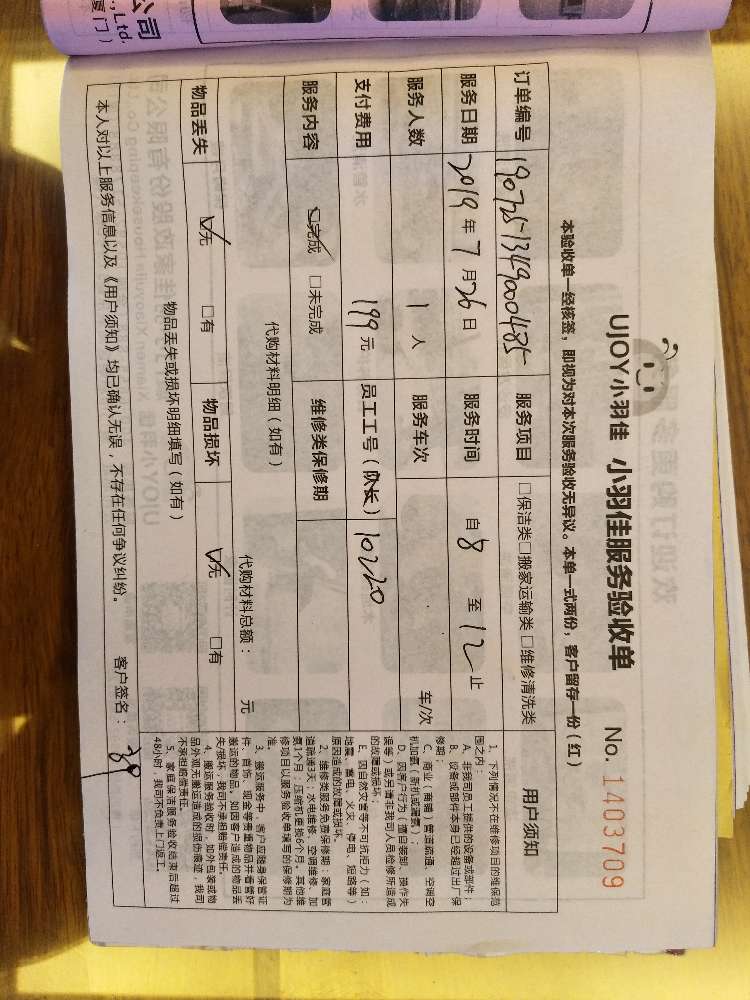 公司
., Ltd.
厦门）
UJOY小羽佳 小羽佳服务验收单 No. 1403709
本验收单一经核签，即视为对本次服务验收无异议。本单一式两份，客户留存一份（红）
订单编号 1907251349000485 服务项目 □保洁类□搬家运输类□维修清洗类
服务日期 2019年7月26日 服务时间 自8至12止
服务人数 1人 服务车次 车/次
支付费用 199元 员工工号（队长） 10220
服务内容 ☑完成 □未完成 维修类保修期
代购材料明细（如有） 代购材料总额： 元
物品丢失 ☑无 □有 物品损坏 ☑无 □有
物品丢失或损坏明细填写（如有）
本人对以上服务信息以及《用户须知》均已确认无误，不存在任何争议纠纷。 客户签名：
用户须知
1、下列情况不在维修项目的维保范
围之内：
A、非我司员工提供的设备或部件；
B、设备或部件本身已经超过出厂保
修期；
C、商业（商铺）管道疏通、空调空
机加氨（新机或漏氨）；
D、因客户行为（擅自装卸、操作失
误等）或另请非我司人员检修所造成
的故障或损坏；
E、因自然灾害等不可抗拒力（如：
地震、雷电、火灾、停电、短路等）
原因造成的故障或损坏。
2、维修类服务免费保修期：家庭管
道疏通3天；水电维修、空调维修、加
氨1个月；压缩机更换6个月，其他维
修项目以服务验收单填写的保修期为
准。
3、搬运服务中，客户应随身保管证
件、首饰、现金等贵重物品并看管好
搬运的物品，如因客户造成的物品丢
失/损坏，我司不承担赔偿责任。
4、搬运服务验收时，如外包装或物
品外观无搬运造成的损伤痕迹，我司
不承担赔偿责任。
5、家庭保洁服务验收结束后超过
48小时，我司不负责上门返工。